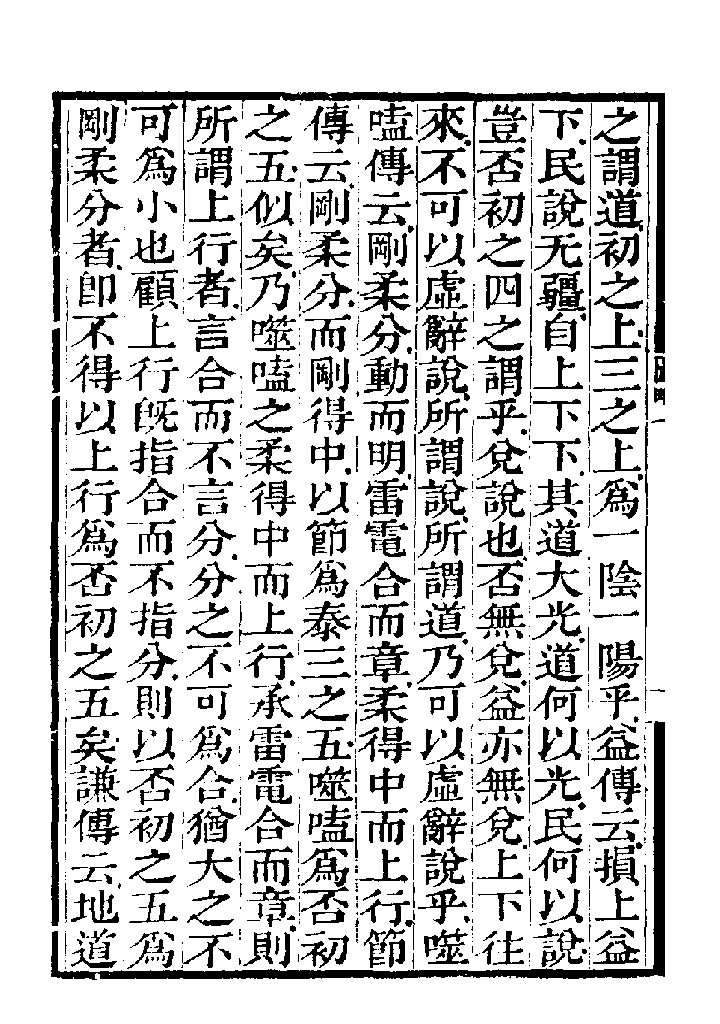 之謂道初之上三之上爲一陰一陽乎益傳云損上益
下民說无疆自上下下其道大光道何以光民何以說
豈否初之四之謂乎兌說也否無兌益亦無兌上下往
來不可以虛辭說所謂說所謂道乃可以虛辭說乎噬
嗑傳云剛柔分動而明雷電合而章柔得中而上行節
傳云剛柔分而剛得中以節爲泰三之五噬嗑爲否初
之五似矣乃噬嗑之柔得中而上行承雷電合而章則
所謂上行者言合而不言分分之不可爲合猶大之不
可爲小也顧上行旣指合而不指分則以否初之五爲
剛柔分者卽不得以上行爲否初之五矣謙傳云地道